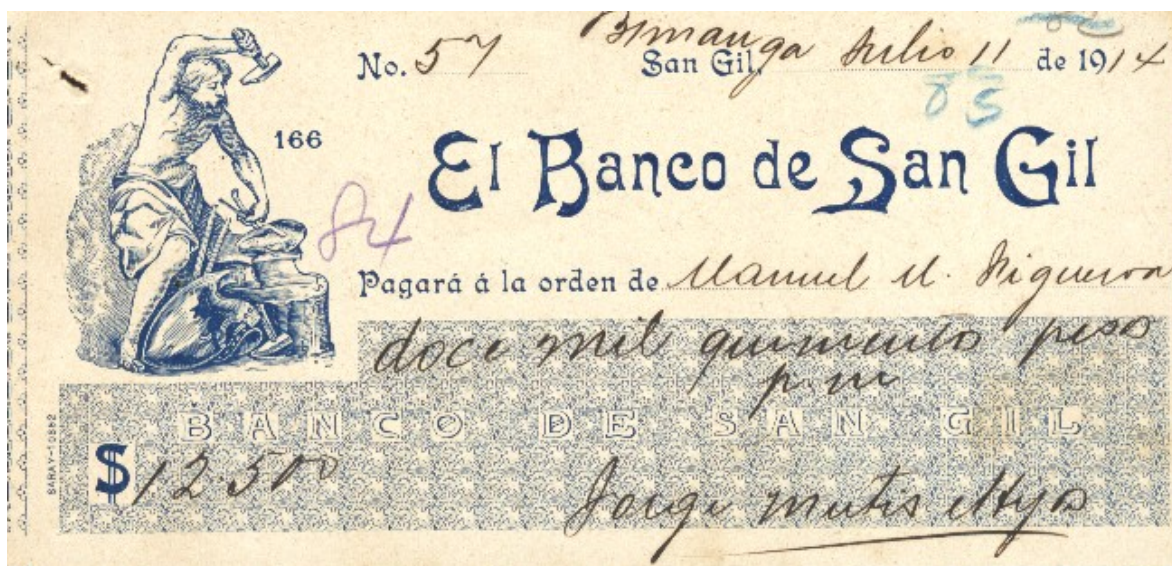 No. 57 Bmanga San Gil, Julio 11 de 1914
83
166
El Banco de San Gil
84
Pagará á la orden de Manuel M. Figueroa
doce mil quinientos pesos
p. m
BANCO DE SAN GIL
$12.500
Jorge Mutis
SARAY-10882